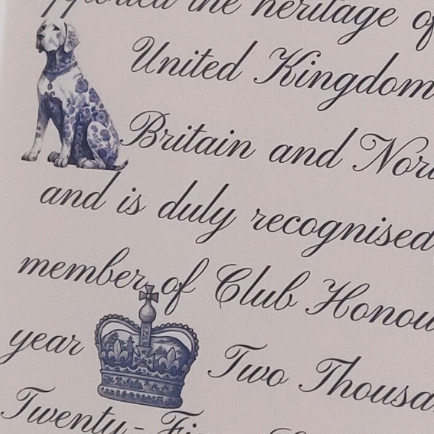 the heritage of
United Kingdom
Britain and
and is duly recognised
member of Club
year Two
Twenty-